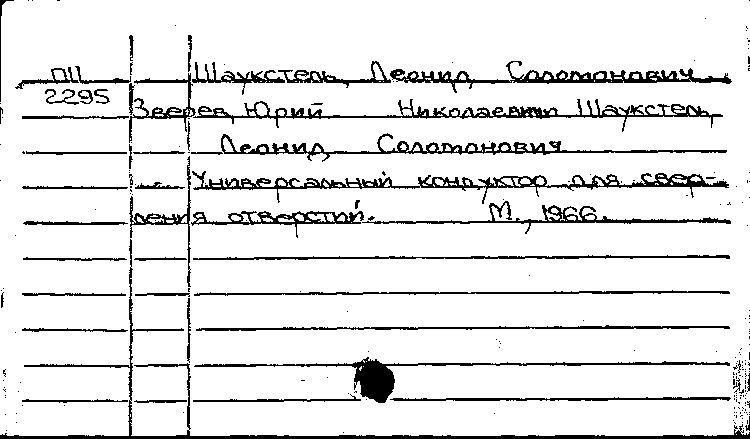 ПЦ Шаукстель, Леонид Соломонович
2295 Зверев, Юрий Николаевич Шаукстель,
Леонид Соломонович
Универсальный кондуктор для свер-
ления отверстий. М., 1966.